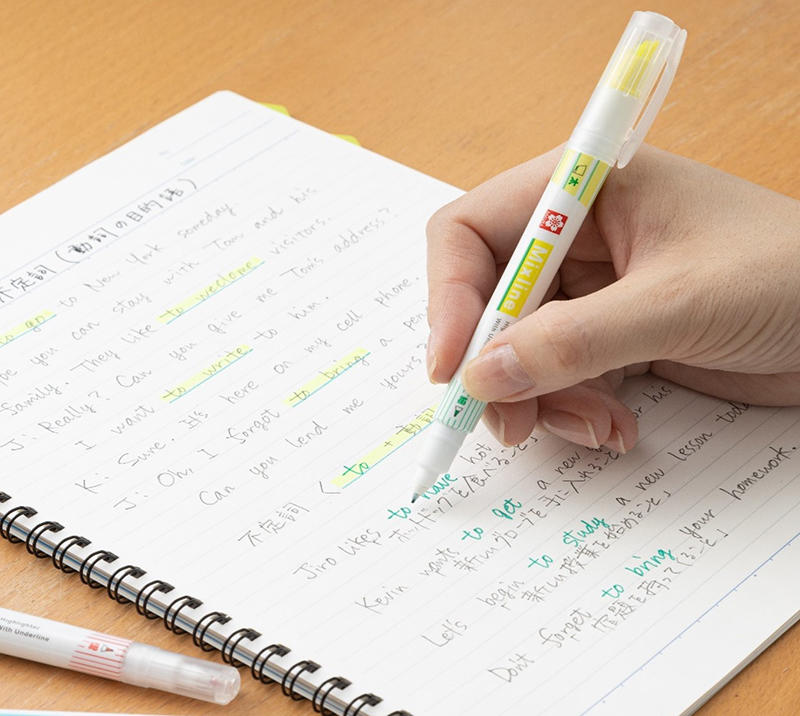 不定詞(動詞の目的語)
to go to New York someday.
pe you can stay with Tom and his
family. They like to welcome visitors.
J: Really? Can you give me Tom's address?
I want to write to him.
K: Sure. It's here on my cell phone.
J: Oh, I forgot to bring a pen
Can you lend me yours?
不定詞 ( to + 動詞
Jiro likes to have hot
ホットドッグを食べること」
Kevin wants to get a new
新しいグローブを手に入れること」 for his
Let's begin to study a new lesson today
新しい授業を始めること」
Don't forget to bring your homework.
宿題を持ってくること」
太
Mixline
With Underline
細
Highlighter
With Underline
細